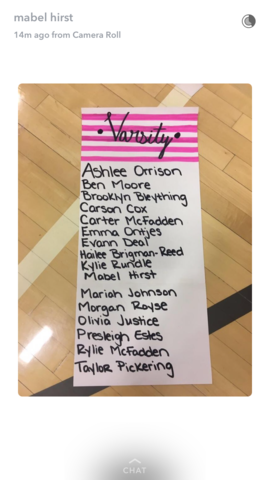 mabel hirst
14m ago from Camera Roll
• Varsity •
Ashlee Orrison
Ben Moore
Brooklyn Bleything
Carson Cox
Carter McFadden
Emma Ontjes
Evann Deal
Hailee Brigman-Reed
Kylie Rundle
Mabel Hirst
Mariah Johnson
Morgan Royse
Olivia Justice
Presleigh Estes
Rylie McFadden
Taylor Pickering
CHAT